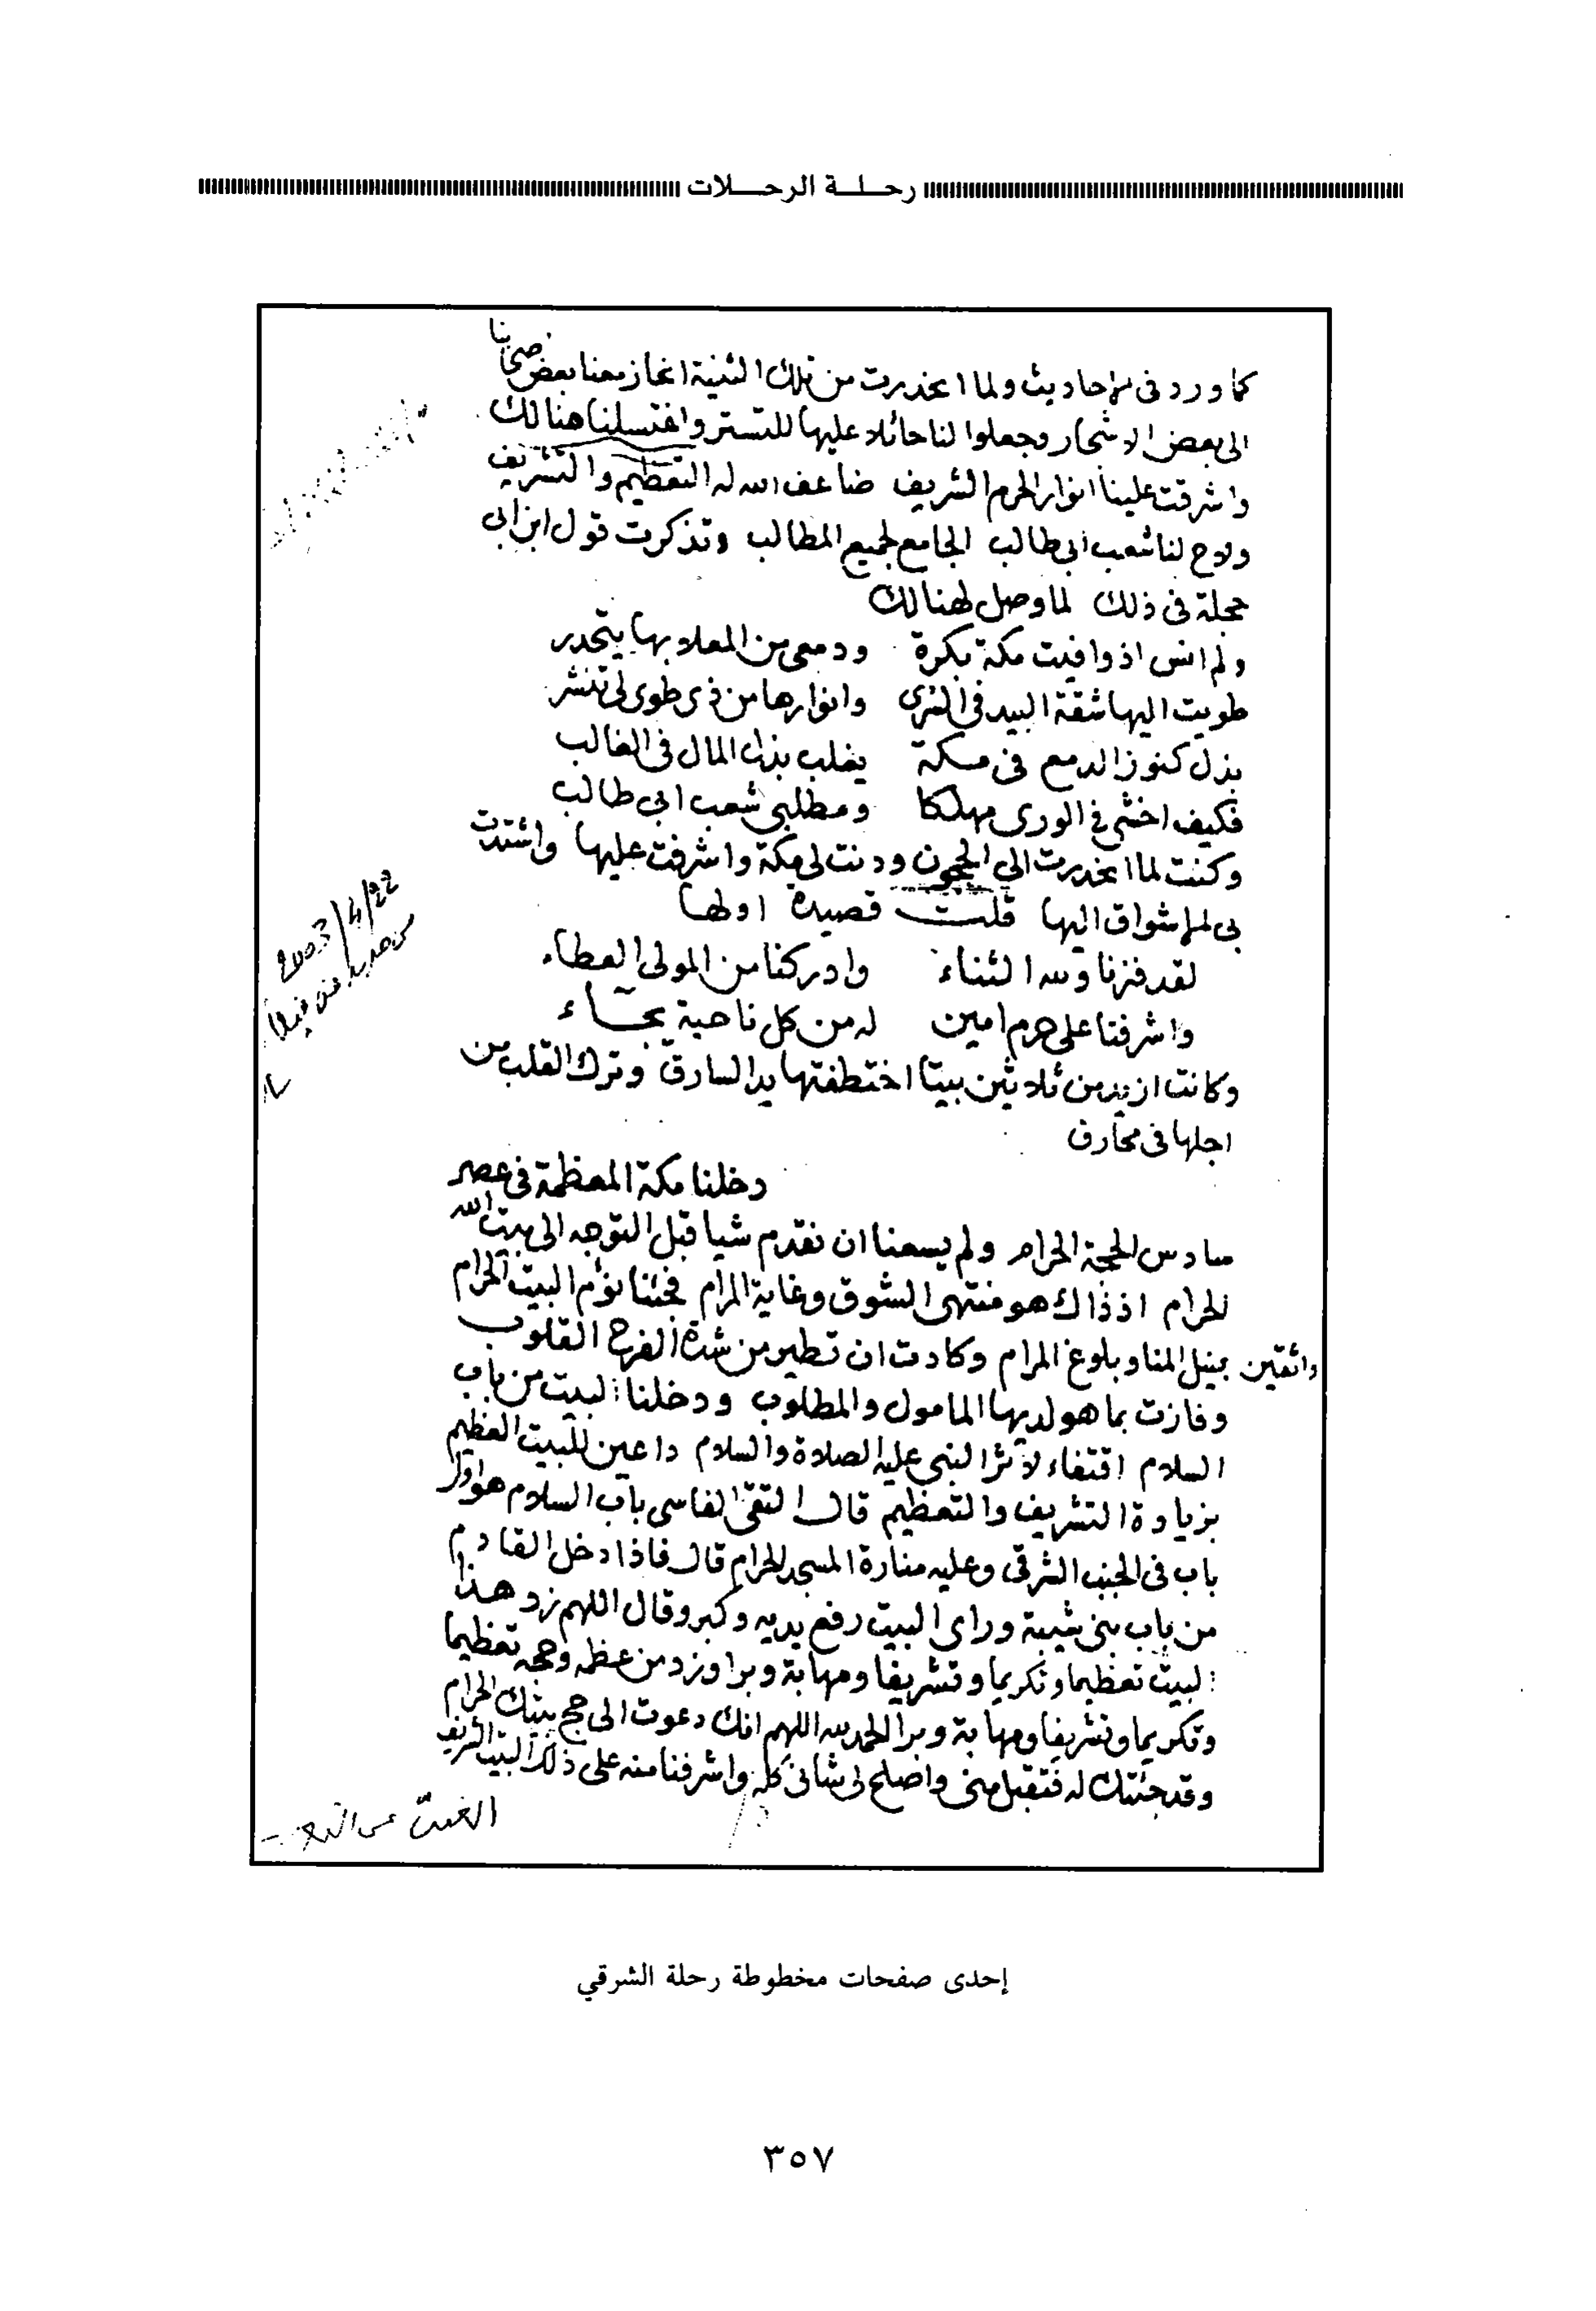 رحلة الرحلات
كما ورد في الاحاديث ولما انحدرت من تلك الثنية انحاز معنا بعض صحابنا
الى بعض الاشجار وجعلوا لنا حائلا عليها للتستر واغتسلنا هنالك
واشرقت علينا انوار الحرم الشريف ضاعف الله له التعظيم والتشريف
ولاح لنا شعب ابي طالب الجامع لجميع المطالب وتذكرت قول ابن ابي
حجلة في ذلك لما وصل لهنالك
ولم انس اذ وافيت مكة بكرة ودمعي من المعلا بها يتحدر
طويت اليها شقة البيد في الثرى وانوارها من ذي طوى لي تنشر
بذل كنوز الدمع في مكة يغلب بذل المال في الغالب
فكيف اخشى في الورى مهلكا ومطلبي شعب ابي طالب
وكنت لما انحدرت الى الحجون ودنت لي مكة واشرفت عليها واشتدت
بي الاشواق اليها قلت قصيدة اولها
لقد فزنا ولله الثناء وادركنا من المولى العطاء
واشرفنا على حرم امين له من كل ناحية يجاء
وكانت ازيد من ثلاثين بيتا اختطفتها يد السارق وترك القلب من
اجلها في محارق
دخلنا مكة المعظمة في عصر
سادس الحجة الحرام ولم يسعنا ان نقدم شيا قبل التوجه الى بيت الله
الحرام اذ ذاك هو منتهى الشوق وغاية المرام فجئنا نؤم البيت الحرام
واثقين بنيل المنا وبلوغ المرام وكادت ان تطير من شدة الفرح القلوب
وفازت بما هو لديها المامول والمطلوب ودخلنا البيت من باب
السلام اقتفاء لاثر النبي عليه الصلاة والسلام داعين للبيت العظيم
بزيادة التشريف والتعظيم قال التقي الفاسي باب السلام هو اول
باب في الجنب الشرقي وعليه منارة المسجد الحرام قال فاذا دخل القادم
من باب بني شيبة وراى البيت رفع يديه وكبر وقال اللهم زد هذا
البيت تعظيما وتكريما وتشريفا ومهابة وبرا وزد من عظمه وحجه تعظيما
وتكريما وتشريفا ومهابة وبرا الحمد لله اللهم انك دعوت الى حج بيتك الحرام
وقد جئتك له فتقبل مني واصلح لي شاني كله واشرفنا منه على ذلك البيت الشريف
2003/4/22
إحدى صفحات مخطوطة رحلة الشرقي
٣٥٧